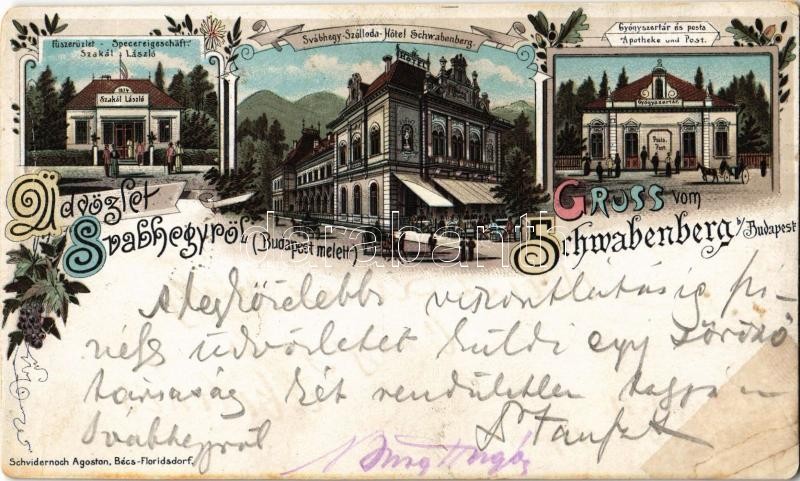 Fűszerüzlet - Specereigeschäft.
Szakál László
1874
Szakál László
Svábhegy-Szálloda-Hôtel Schwabenberg.
HOTEL
Gyógyszertár és posta
Apotheke und Post.
Gyógyszertár.
Posta
Post
Üdvözlet
Svábhegyről
(Budapest melett)
Gruss vom
Schwabenberg b/Budapest
A legközelebbi viszontlátásig szí-
ves üdvözletet küldi egy
társaság két rendületlen tagja a
Svábhegyről
Schvidernoch Agoston, Bécs-Floridsdorf.
darabanth